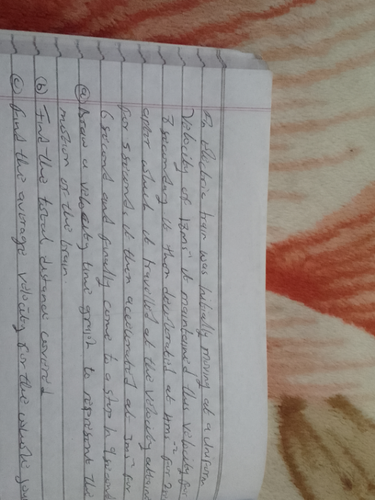 An electric train was initially moving at a uniform
Velocity of 12ms⁻¹ it maintained this velocity for
7 seconds, it then decelerated at 4ms⁻² for
after which it travelled at the velocity
for 5 seconds, it then accelerated at 3ms⁻² for
6 second and finally come to a stop in 4 seconds
(a) Draw a velocity time graph to represent the
motion of the train.
(b) Find the total distance covered
(c) find the average velocity for the whole